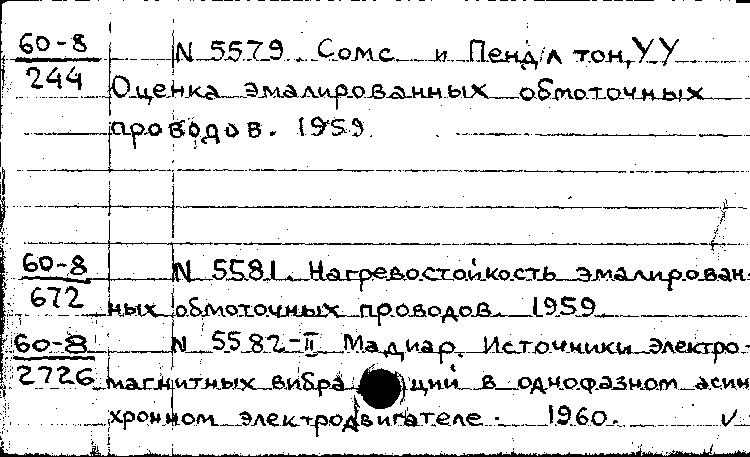 60-8 N 5579. Сомс и Пендлтон, УУ
244 Оценка эмалированных обмоточных
проводов. 1959
60-8 N 5581. Нагревостойкость эмалирован-
672 ных обмоточных проводов. 1959.
60-8 N 5582-II Мадиар. Источники электро-
2726 магнитных вибра ций в однофазном асин
хронном электродвигателе. 1960. ✓